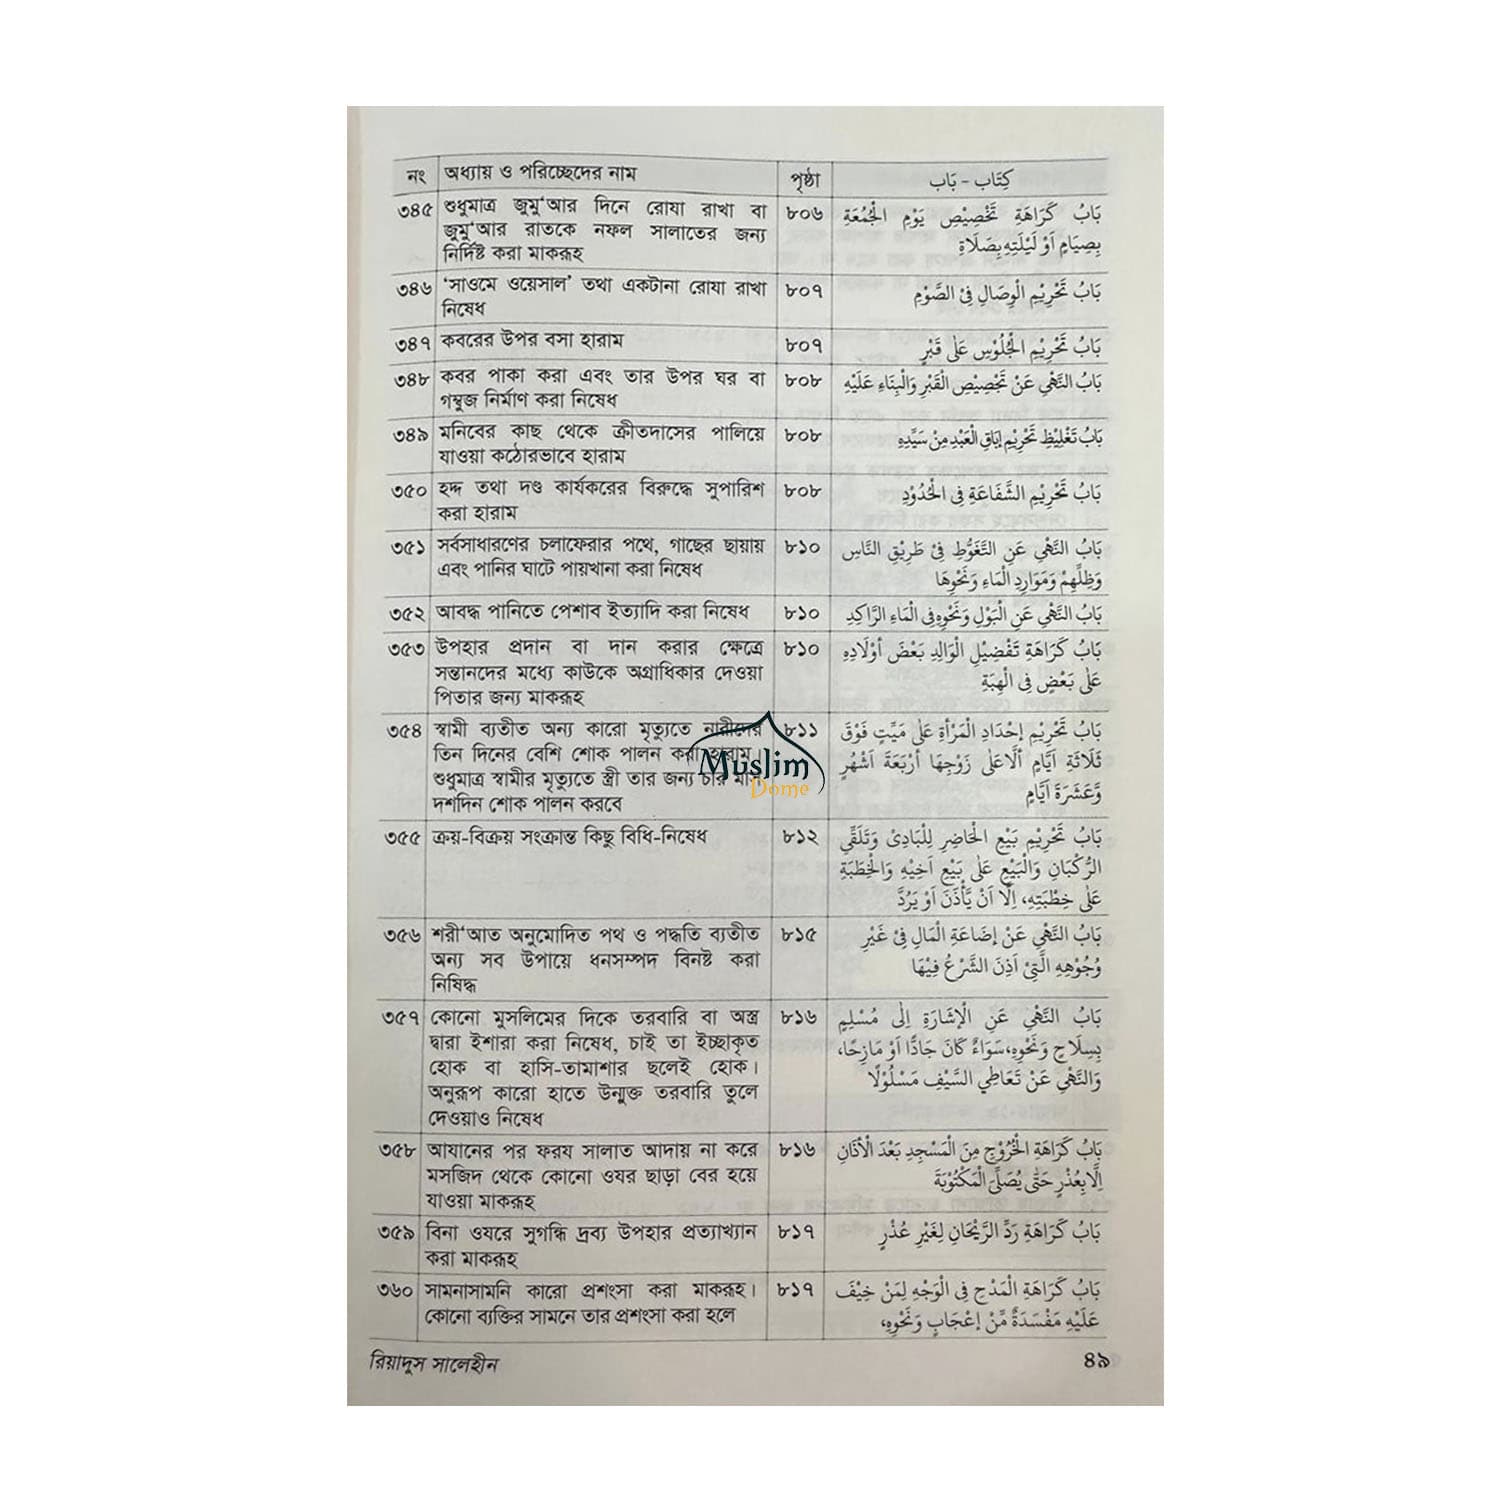 নং অধ্যায় ও পরিচ্ছেদের নাম পৃষ্ঠা كِتَاب - بَاب
৩৪৫ শুধুমাত্র জুমু'আর দিনে রোযা রাখা বা ৮০৬ بَابُ كَرَاهَةِ تَخْصِيْصِ يَوْمِ الْجُمُعَةِ
জুমু'আর রাতকে নফল সালাতের জন্য بِصِيَامٍ اَوْ لَيْلَتِهِ بِصَلَاةِ
নির্দিষ্ট করা মাকরূহ
৩৪৬ 'সাওমে ওয়েসাল' তথা একটানা রোযা রাখা ৮০৭ بَابُ تَحْرِيْمِ الْوِصَالِ فِى الصَّوْمِ
নিষেধ
৩৪৭ কবরের উপর বসা হারাম ৮০৭ بَابُ تَحْرِيْمِ الْجُلُوْسِ عَلٰى قَبْرٍ
৩৪৮ কবর পাকা করা এবং তার উপর ঘর বা ৮০৮ بَابُ النَّهْيِ عَنْ تَجْصِيْصِ الْقَبْرِ وَالْبِنَاءِ عَلَيْهِ
গম্বুজ নির্মাণ করা নিষেধ
৩৪৯ মনিবের কাছ থেকে ক্রীতদাসের পালিয়ে ৮০৮ بَابُ تَغْلِيْظِ تَحْرِيْمِ اِبَاقِ الْعَبْدِ مِنْ سَيِّدِهِ
যাওয়া কঠোরভাবে হারাম
৩৫০ হদ্দ তথা দণ্ড কার্যকরের বিরুদ্ধে সুপারিশ ৮০৮ بَابُ تَحْرِيْمِ الشَّفَاعَةِ فِى الْحُدُوْدِ
করা হারাম
৩৫১ সর্বসাধারণের চলাফেরার পথে, গাছের ছায়ায় ৮১০ بَابُ النَّهْيِ عَنِ التَّغَوُّطِ فِىْ طَرِيْقِ النَّاسِ
এবং পানির ঘাটে পায়খানা করা নিষেধ وَظِلِّهِمْ وَمَوَارِدِ الْمَاءِ وَنَحْوِهَا
৩৫২ আবদ্ধ পানিতে পেশাব ইত্যাদি করা নিষেধ ৮১০ بَابُ النَّهْيِ عَنِ الْبَوْلِ وَنَحْوِهِ فِى الْمَاءِ الرَّاكِدِ
৩৫৩ উপহার প্রদান বা দান করার ক্ষেত্রে ৮১০ بَابُ كَرَاهَةِ تَفْضِيْلِ الْوَالِدِ بَعْضَ أَوْلَادِهِ
সন্তানদের মধ্যে কাউকে অগ্রাধিকার দেওয়া عَلٰى بَعْضٍ فِى الْهِبَةِ
পিতার জন্য মাকরূহ
৩৫৪ স্বামী ব্যতীত অন্য কারো মৃত্যুতে নারীদের ৮১১ بَابُ تَحْرِيْمِ اِحْدَادِ الْمَرْأَةِ عَلٰى مَيِّتٍ فَوْقَ
তিন দিনের বেশি শোক পালন করা হারাম। ثَلَاثَةِ اَيَّامٍ اَلَّا عَلٰى زَوْجِهَا اَرْبَعَةَ اَشْهُرٍ
শুধুমাত্র স্বামীর মৃত্যুতে স্ত্রী তার জন্য চার মাস وَّعَشَرَةَ اَيَّامٍ
দশদিন শোক পালন করবে
Muslim
Dome
৩৫৫ ক্রয়-বিক্রয় সংক্রান্ত কিছু বিধি-নিষেধ ৮১২ بَابُ تَحْرِيْمِ بَيْعِ الْحَاضِرِ لِلْبَادِىْ وَتَلَقِّي
الرُّكْبَانِ وَالْبَيْعِ عَلٰى بَيْعِ اَخِيْهِ وَالْخِطْبَةِ
عَلٰى خِطْبَتِهِ، اِلَّا اَنْ يَّأْذَنَ اَوْ يَرُدَّ
৩৫৬ শরী'আত অনুমোদিত পথ ও পদ্ধতি ব্যতীত ৮১৫ بَابُ النَّهْيِ عَنْ اِضَاعَةِ الْمَالِ فِىْ غَيْرِ
অন্য সব উপায়ে ধনসম্পদ বিনষ্ট করা وُجُوْهِهِ الَّتِىْ اَذِنَ الشَّرْعُ فِيْهَا
নিষিদ্ধ
৩৫৭ কোনো মুসলিমের দিকে তরবারি বা অস্ত্র ৮১৬ بَابُ النَّهْيِ عَنِ الْاِشَارَةِ اِلٰى مُسْلِمٍ
দ্বারা ইশারা করা নিষেধ, চাই তা ইচ্ছাকৃত بِسِلَاحٍ وَنَحْوِهِ، سَوَاءٌ كَانَ جَادًّا اَوْ مَازِحًا،
হোক বা হাসি-তামাশার ছলেই হোক। وَالنَّهْيِ عَنْ تَعَاطِي السَّيْفِ مَسْلُوْلًا
অনুরূপ কারো হাতে উন্মুক্ত তরবারি তুলে
দেওয়াও নিষেধ
৩৫৮ আযানের পর ফরয সালাত আদায় না করে ৮১৬ بَابُ كَرَاهَةِ الْخُرُوْجِ مِنَ الْمَسْجِدِ بَعْدَ الْاَذَانِ
মসজিদ থেকে কোনো ওযর ছাড়া বের হয়ে اِلَّا بِعُذْرٍ حَتّٰى يُصَلِّىَ الْمَكْتُوْبَةَ
যাওয়া মাকরূহ
৩৫৯ বিনা ওযরে সুগন্ধি দ্রব্য উপহার প্রত্যাখ্যান ৮১৭ بَابُ كَرَاهَةِ رَدِّ الرَّيْحَانِ لِغَيْرِ عُذْرٍ
করা মাকরূহ
৩৬০ সামনাসামনি কারো প্রশংসা করা মাকরূহ। ৮১৭ بَابُ كَرَاهَةِ الْمَدْحِ فِى الْوَجْهِ لِمَنْ خِيْفَ
কোনো ব্যক্তির সামনে তার প্রশংসা করা হলে عَلَيْهِ مَفْسَدَةٌ مِّنْ اِعْجَابٍ وَنَحْوِهِ،
রিয়াদুস সালেহীন ৪৯